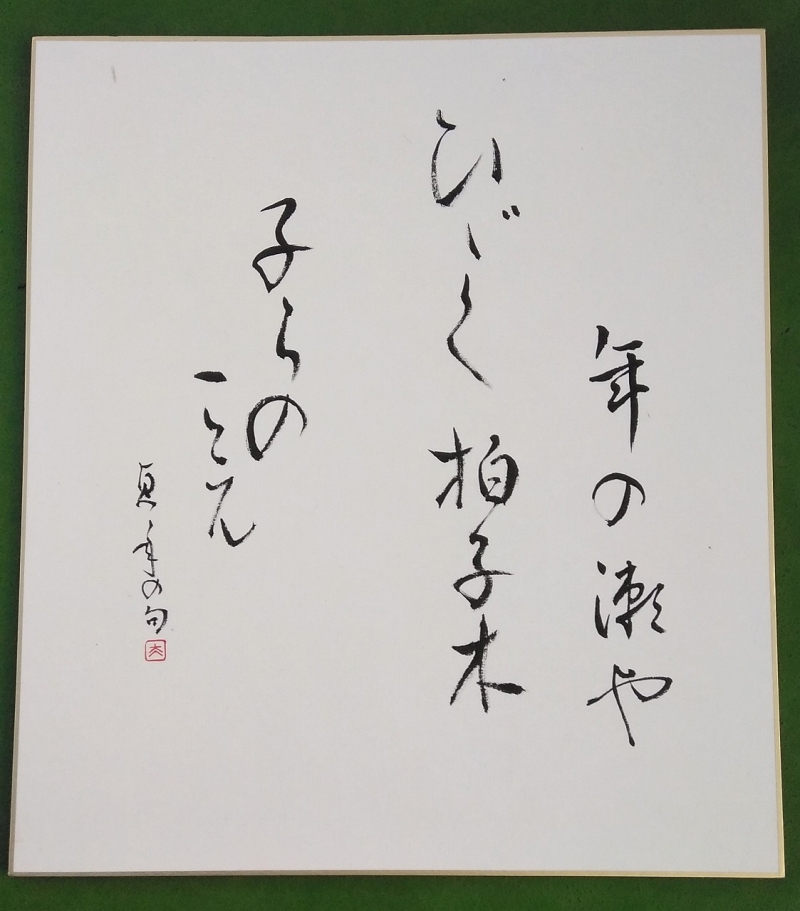 年の瀬や
ひゞく拍子木
子らの
こえ
の句